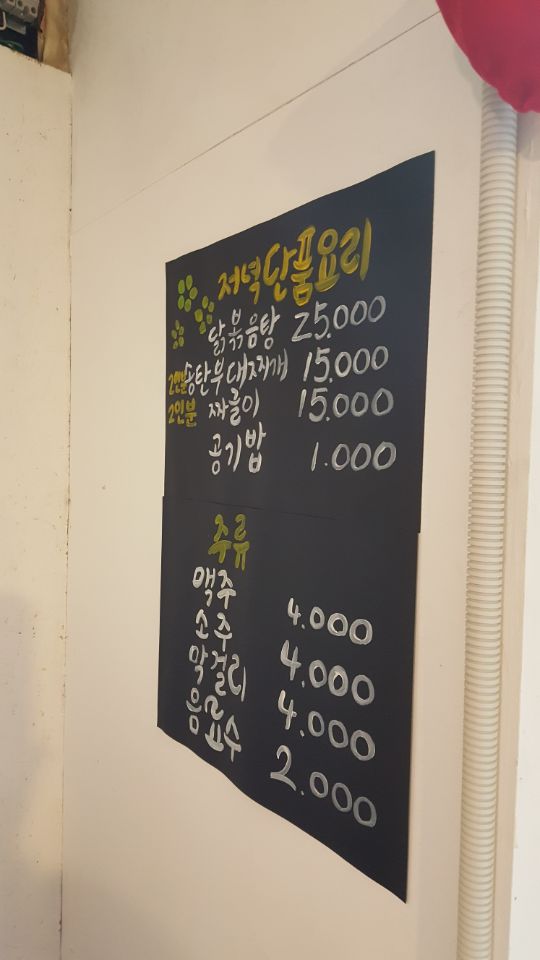 저녁단품요리
닭볶음탕 25.000
2인분 송탄부대찌개 15.000
2인분 짜글이 15.000
공기밥 1.000
주류
맥주 4.000
소주 4.000
막걸리 4.000
음료수 2.000